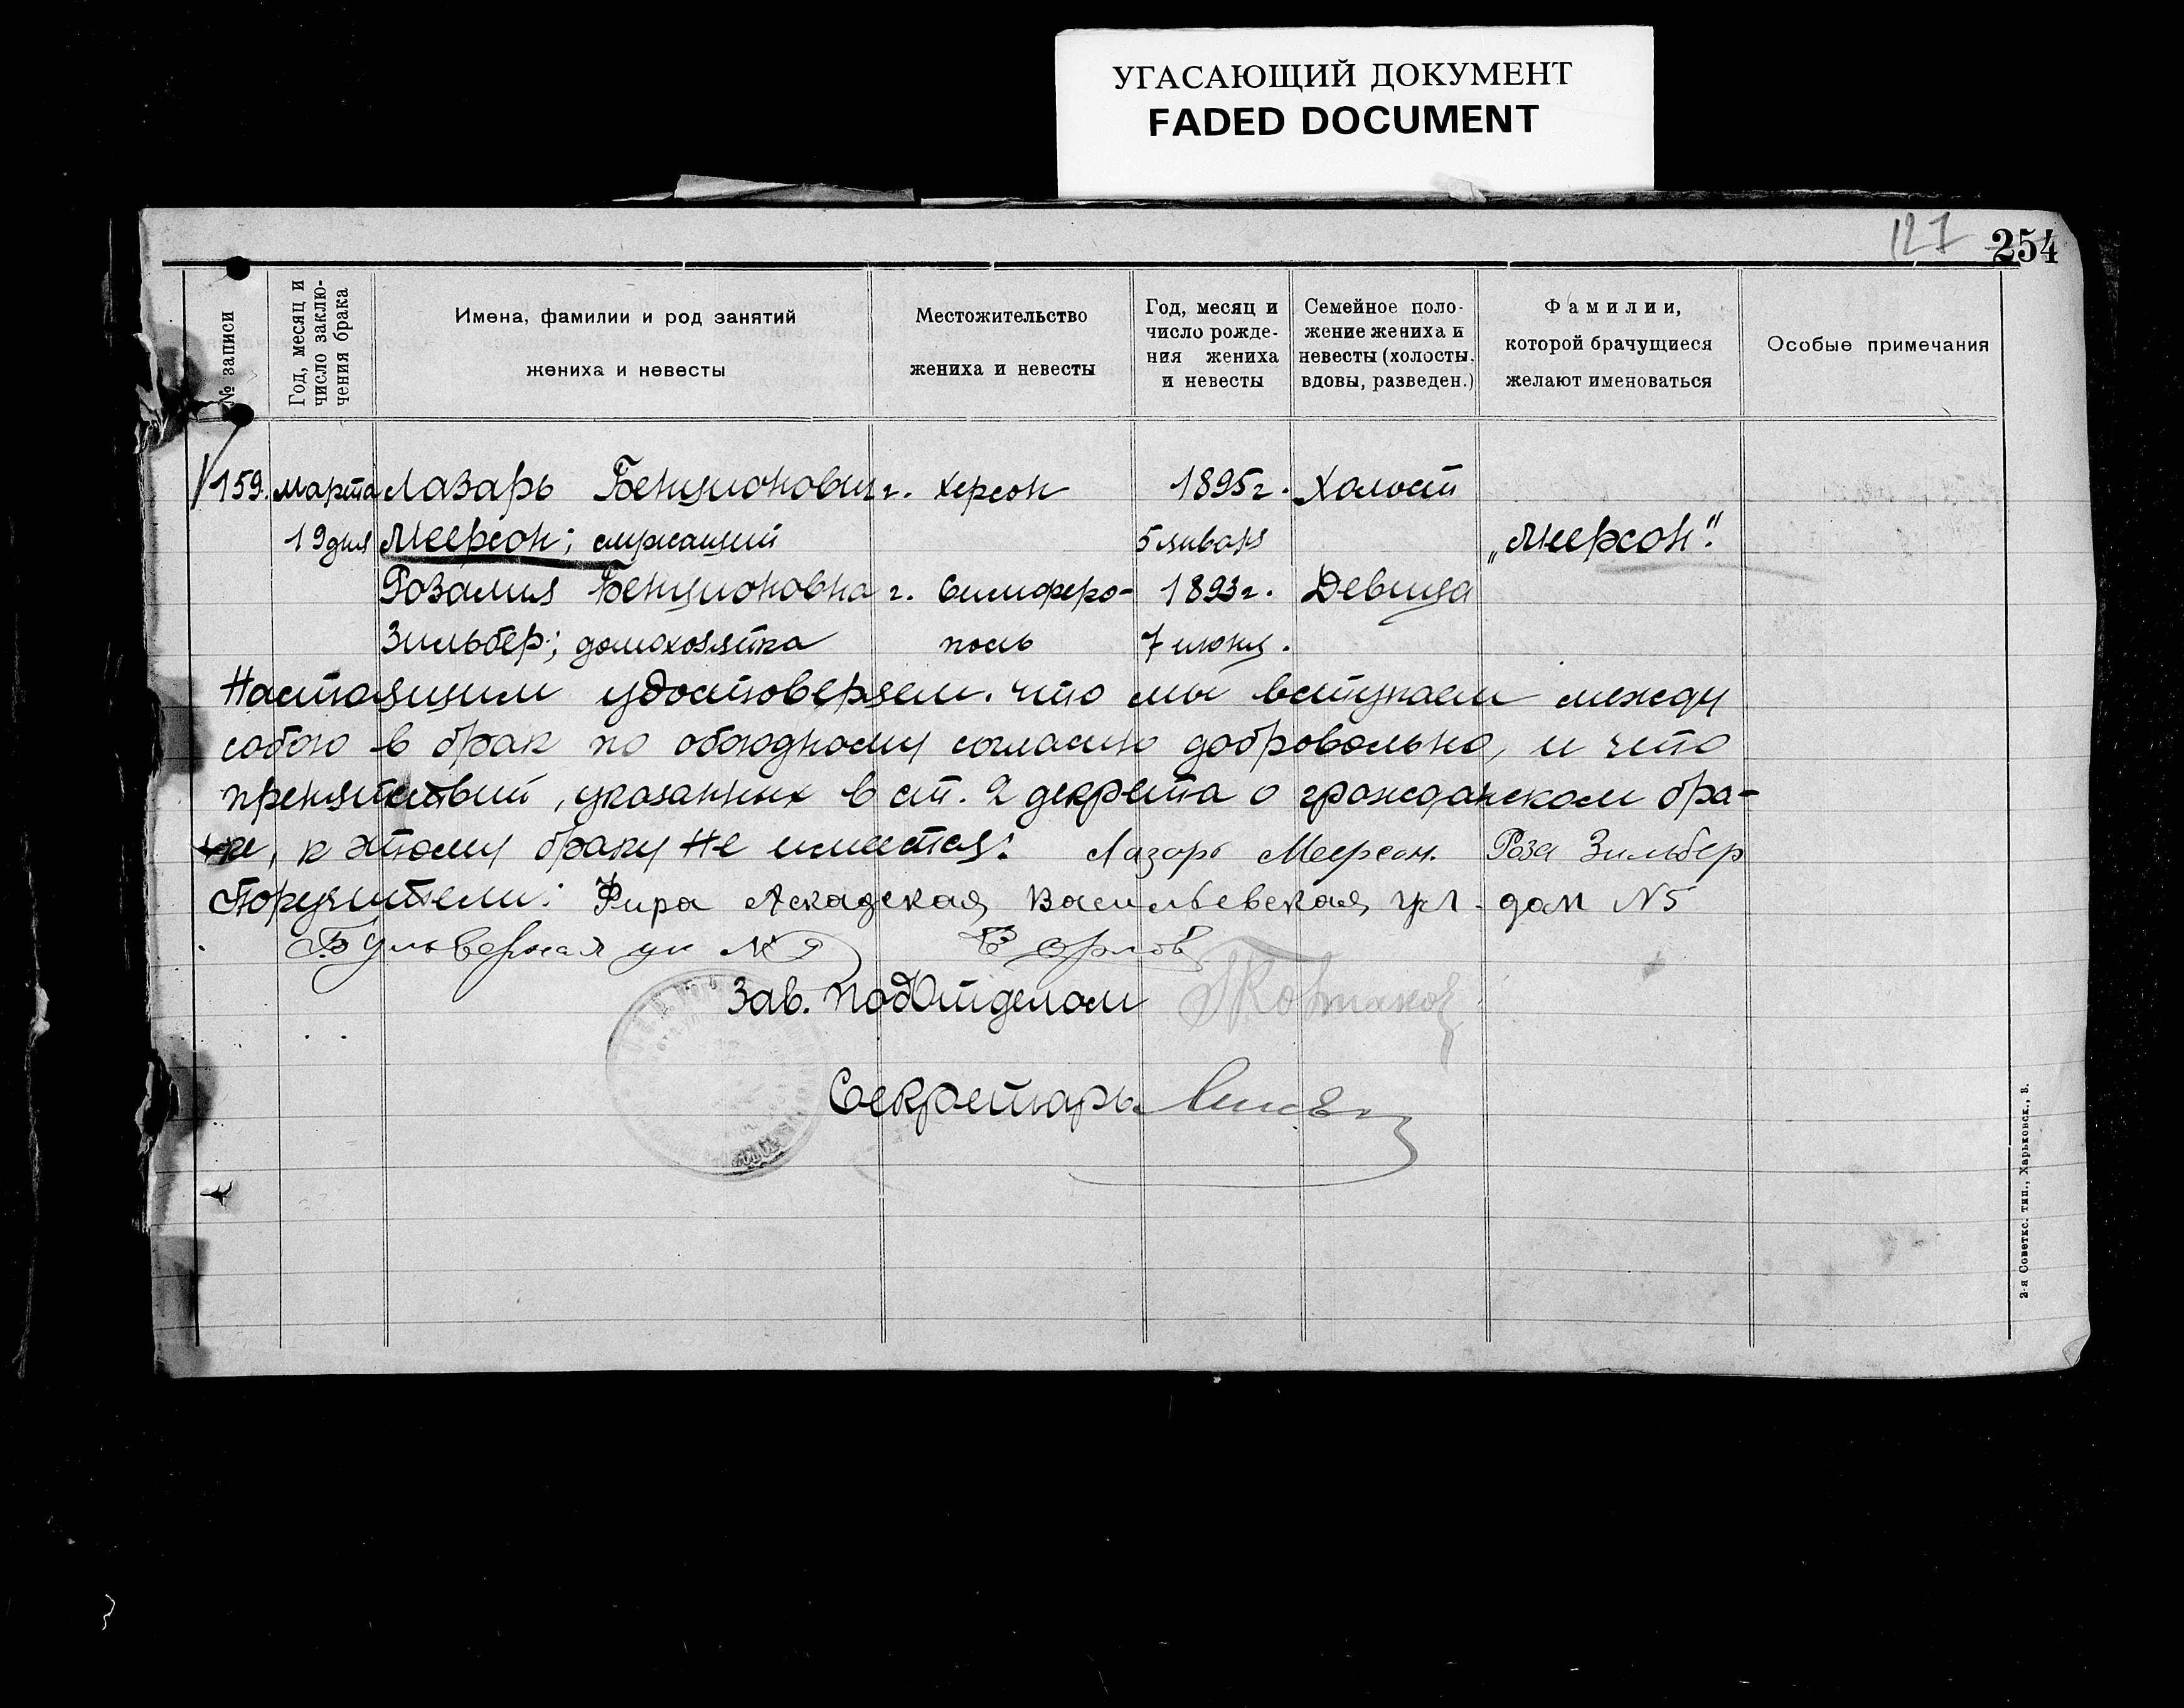 УГАСАЮЩИЙ ДОКУМЕНТ
FADED DOCUMENT
127 254
№ записи
Год, месяц и
число заклю-
чения брака
Имена, фамилии и род занятий
жениха и невесты
Местожительство
жениха и невесты
Год, месяц и
число рожде-
ния жениха
и невесты
Семейное поло-
жение жениха и
невесты (холосты,
вдовы, разведен.)
Фамилии,
которой брачущиеся
желают именоваться
Особые примечания
159. марта Лазарь Бенционович г. Херсон 1895 г. Холост
19 дня Меерсон; служащий 5 января „Меерсон".
Розалия Бенционовна г. Симферо- 1893 г. Девица
Зильбер; домохозяйка поль 7 июня.
Настоящим удостоверяем, что мы вступаем между
собою в брак по обоюдному согласию добровольно, и что
препятствий, указанных в ст. 2 декрета о гражданском бра-
ке, к этому браку не имеется: Лазарь Меерсон. Роза Зильбер
Поручители: Фира Аскадская Васильевская ул. дом N5
Бульверная ул № 9 В Орлов
Зав. подОтделом
Секретарь
2-я Советск. тип., Харьковск., 3.